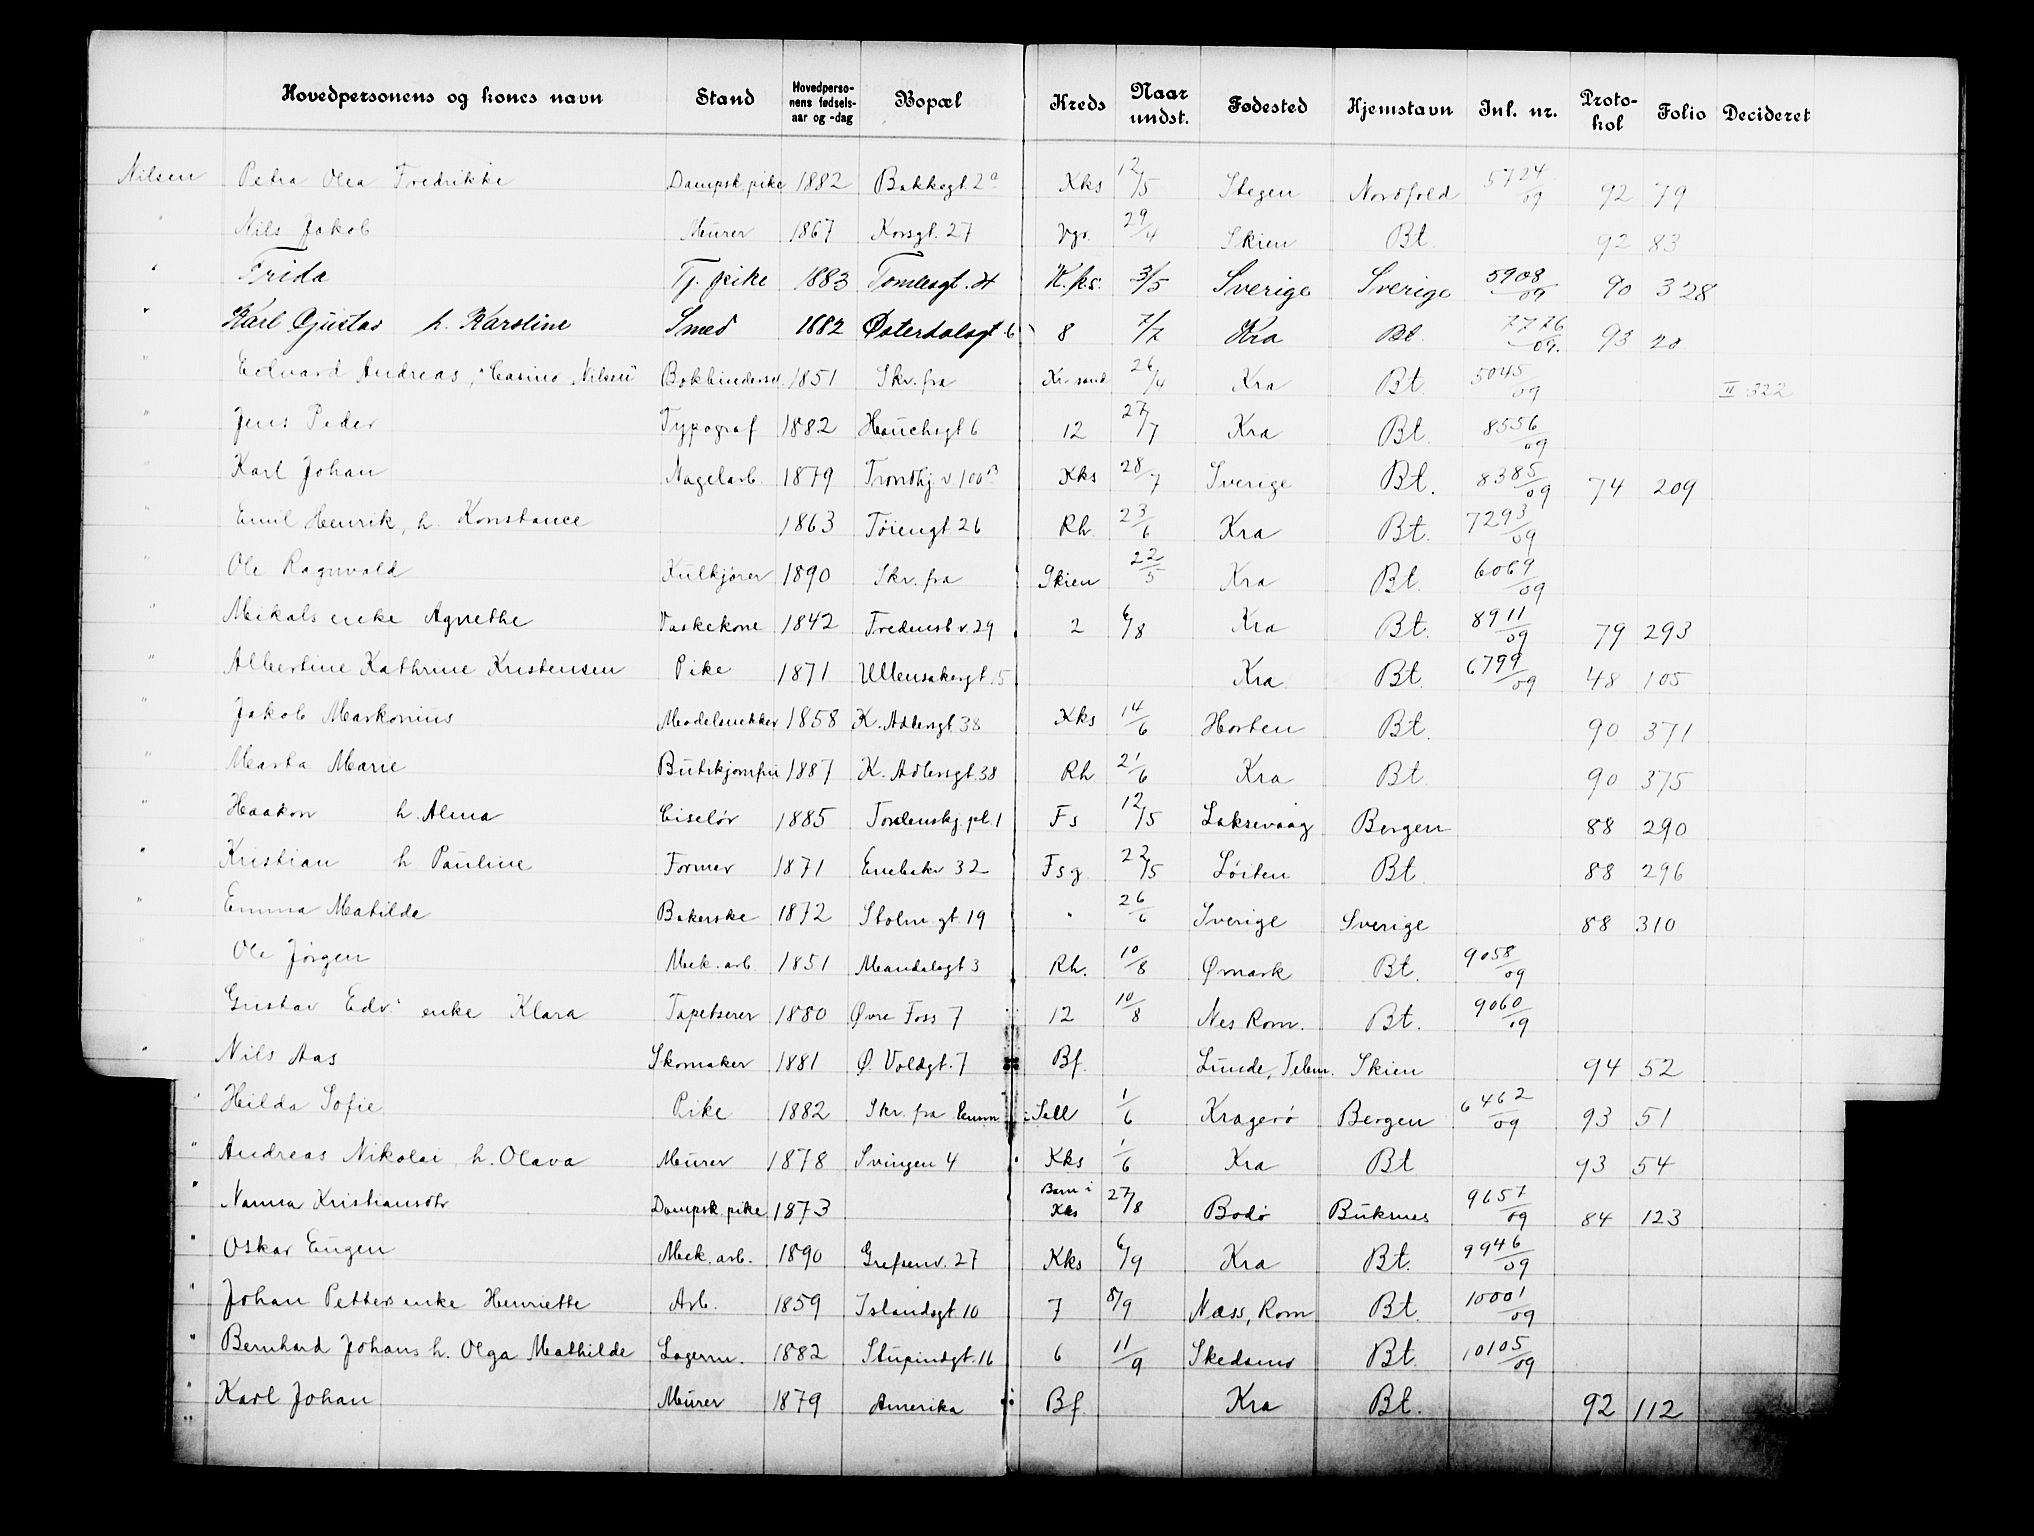 Hovedpersonens og kones navn Stand Hovedperso-nens fødsels-aar og -dag Bopæl Kreds Naar undst. Fødested Hjemstavn Inl. nr. Proto-kol Folio Decideret
Nilsen Petra Olea Fredrikke Dampsk. pike 1882 Bakkegt. 2a Kks 12/5 Stegen Nordfold 5724/09 92 79
" Nils Jakob Murer 1867 Korsgt. 27 Vgr. 29/4 Skien Bt. 92 83
" Frida Tj. pike 1883 Tomtesgt. 24 K.ks. 3/5 Sverige Sverige 5908/09 90 328
" Karl Gustav h. Karoline Smed 1882 Østerdalsgt. 6 8 7/7 Kra Bt. 7776/09. 93 20
" Edvard Andreas, "Casino Nilsen" Bokbinders. 1851 Skr. fra Kr.sand 26/4 Kra Bt. 5045/09 II 322
" Jens Peder Typograf 1882 Hauchsgt 6 12 27/7 Kra Bt. 8556/09
Karl Johan Nagelarb. 1879 Trondhj. v. 100B Kks 28/7 Sverige Bt. 8385/09 74 209
" Emil Henrik, h. Konstance 1863 Tøiengt 26 Rh. 23/6 Kra Bt. 7293/09
" Ole Ragnvald Kulkjører 1890 Skr. fra Skien 22/5 Kra Bt. 6069/09
" Mikals enke Agnethe Vaskekone 1842 Fredensb. v. 29 2 6/8 Kra Bt. 8911/09 79 293
" Albertine Kathrine Kristensen Pike 1871 Ullensakergt. 15 Kra. Bt. 6799/09 48 105
" Jakob Markonius Modelsnekker 1858 K. Adlersgt 38 Kks 14/6 Horten Bt. 90 371
" Marta Marie Butikjomfru 1887 K. Adlersgt. 38 Rh 21/6 Kra Bt. 90 375
" Haakon h. Alma Ciselør 1885 Tordenskj. pl. 1 Fs 12/5 Laksevaag Bergen 88 290
" Kristian h Pauline Former 1871 Enebakv 32 Fsg. 22/5 Løiten Bt. 88 296
" Emma Matilde Bakerske 1872 Stolm. gt. 19 " 26/6 Sverige Sverige 88 310
" Ole Jørgen Mek. arb. 1851 Mandalsgt 3 Rh. 10/8 Ømark Bt. 9058/09
Gustav Edv. enke Klara Tapetserer 1880 Øvre Foss 7 12 10/8 Nes Rom. Bt. 9060/09
" Nils Aas Skomaker 1881 Ø. Voldgt. 7 Bf. Lunde, Telem. Skien 94 52
" Hilda Sofie Pike 1882 Skr. fra Sell 1/6 Kragerø Bergen 6462/09 93 51
" Andreas Nikolai h. Olava Murer 1878 Svingen 4 Kks 1/6 Kra Bt 93 54
" Nanna Kristiansdtr Dampsk. pike 1873 Barn i Kks 27/8 Bodø Buksnes 9657/09 84 123
" Oskar Eugen Mek. arb. 1890 Grefsenv. 27 Kks 6/9 Kra Bt. 9946/09
" Johan Petters enke Henriette Arb. 1859 Islandsgt 10 7 8/9 Næss, Rom Bt. 10001/09
" Bernhard Johans h. Olga Mathilde Lagerm. 1882 Stupindgt. 16 6 11/9 Skedsmo Bt. 10105/09
" Karl Johan Murer 1879 Amerika Bf. Kra Bt. 92 112
"